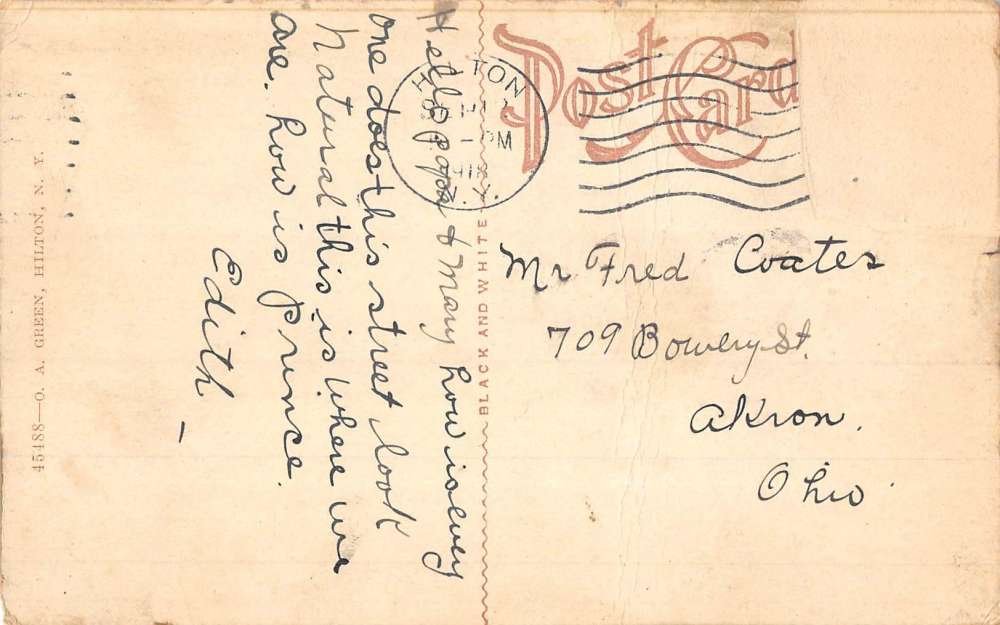 Post Card
HILTON
PM
Hello papa & Mary how is every
one does this street look
Natural this is where we
are. how is prince.
Edith
Mr Fred Coates
709 Bowery St.
Akron.
Ohio
BLACK AND WHITE
45488—O. A. GREEN, HILTON, N. Y.